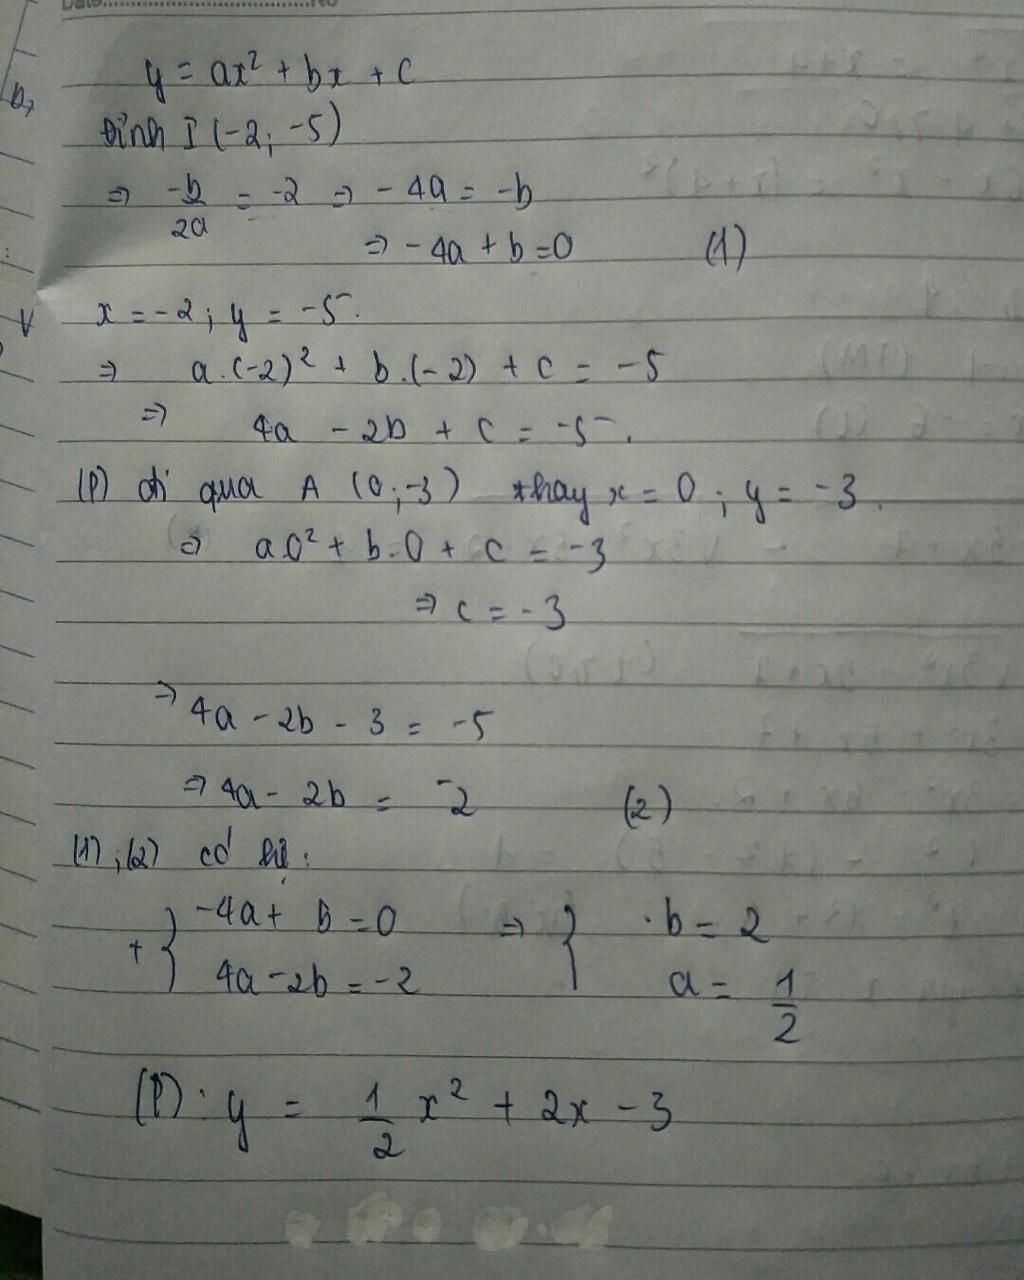 Date No
y = ax² + bx + c
Đỉnh I (-2; -5)
⇒ -b/2a = -2 ⇒ -4a = -b
⇒ -4a + b = 0 (1)
x = -2 ; y = -5.
⇒ a.(-2)² + b.(-2) + c = -5
⇒ 4a - 2b + c = -5.
(P) đi qua A (0;-3) thay x = 0 ; y = -3.
⇒ a.0² + b.0 + c = -3
⇒ c = -3
⇒ 4a - 2b - 3 = -5
⇒ 4a - 2b = -2 (2)
(1) ; (2) có hệ :
+ } -4a + b = 0 ⇒ } b = 2
4a - 2b = -2 a = 1/2
(P) : y = 1/2 x² + 2x - 3